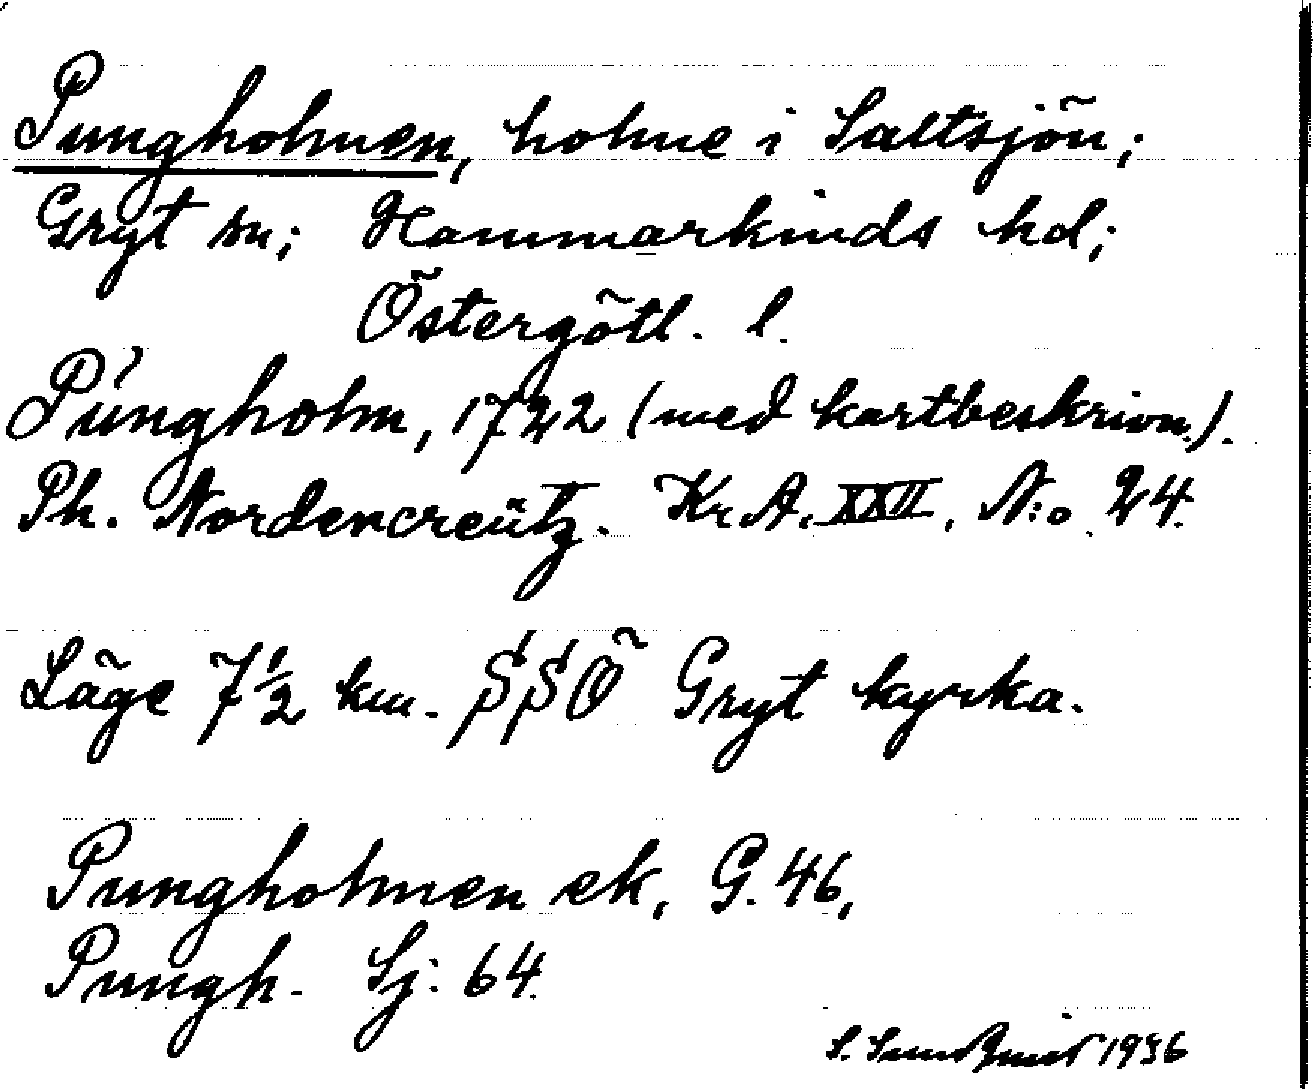 Pungholmen, holme i Saltsjön;
Gryt sn; Hammarkinds hd;
Östergötl. l.
Pungholm, 1722 (med kartbeskrivn.).
Ph. Nordencreütz. Kr.A. XXII, N:o 24.
Läge 7½ km. SSÖ Gryt kyrka.
Pungholmen ek, G. 46,
Pungh. Sj: 64.
S. 1936